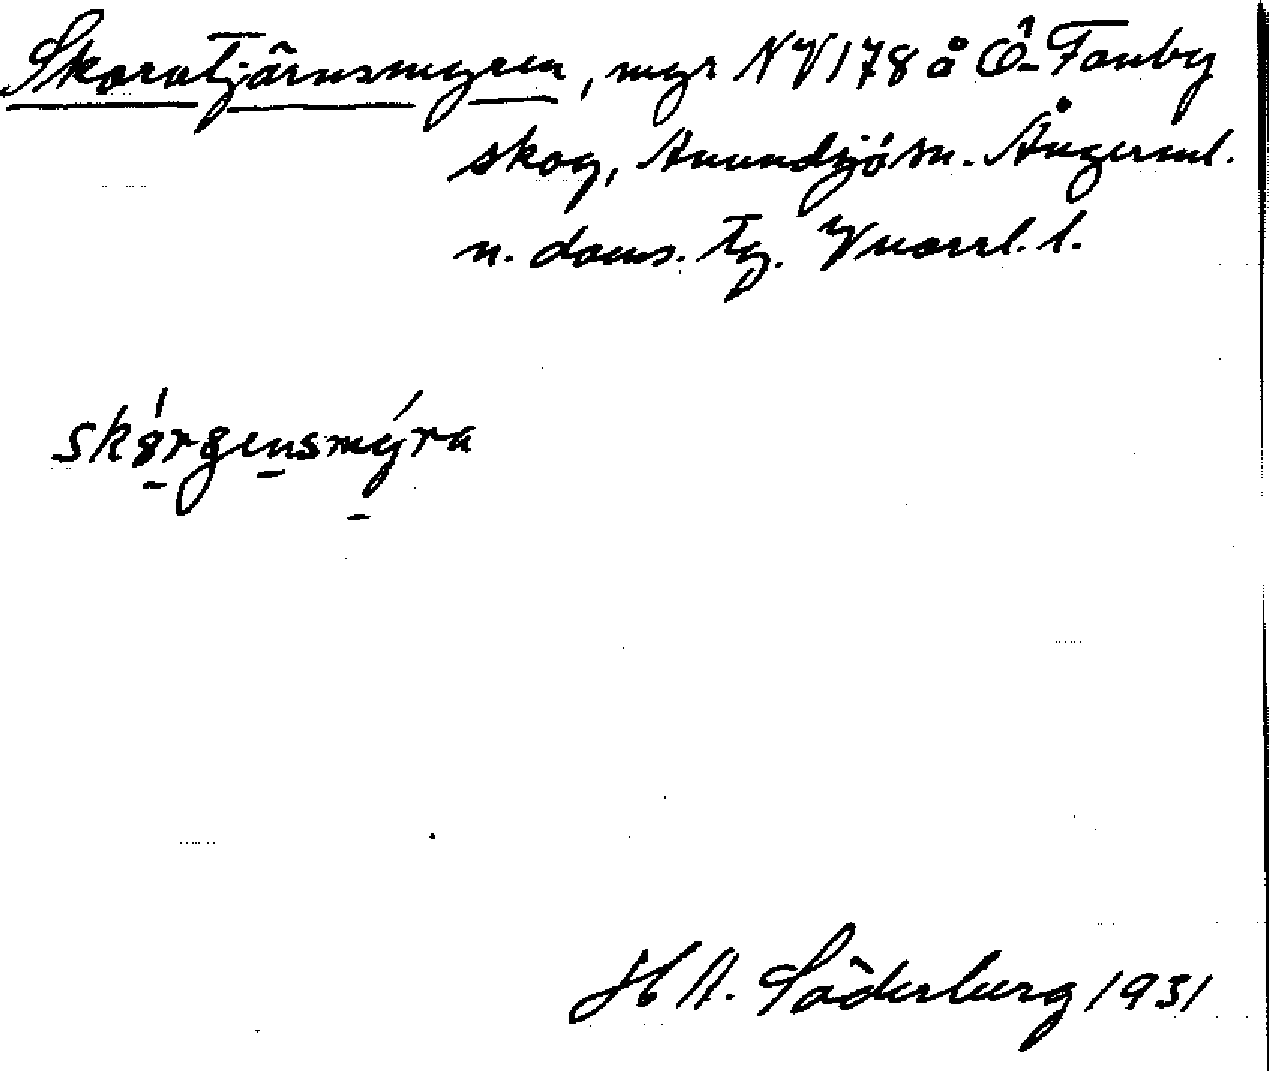 Skaratjärnsmyren, myr NV 178 å Ö. Tanby
skog, Anundsjö sn. Ångerml.
n. dens. Tg. l.
skǿrgensmýra
H A. Söderberg 1931